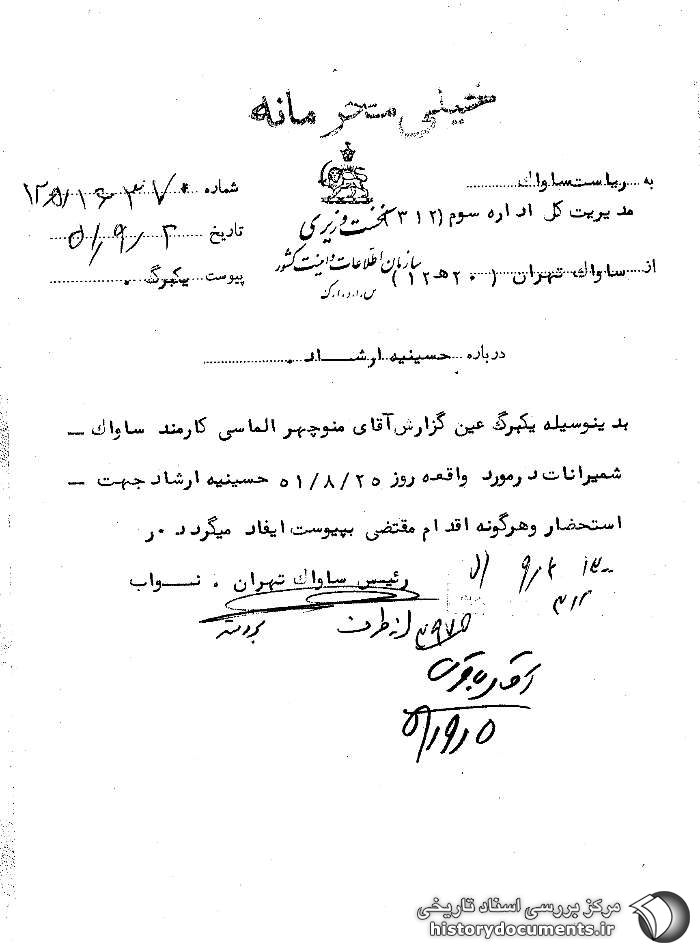 خیلی محرمانه
به ریاست ساواک
مدیریت کل اداره سوم (۳۱۲)
نخست وزیری
سازمان اطلاعات و امنیت کشور
س.ا.و.ا.ک
از ساواک تهران (۲۰ هـ ۱۲)
شماره
تاریخ ۵۱/۹/۲
پیوست یکبرگ.
درباره حسینیه ارشاد.
بدینوسیله یکبرگ عین گزارش آقای منوچهر الماسی کارمند ساواک –
شمیرانات در مورد واقعه روز ۵۱/۸/۲۵ حسینیه ارشاد جهت –
استحضار و هرگونه اقدام مقتضی بپیوست ایفاد میگردد. ر
رئیس ساواک تهران. نواب
از طرف
۳۱۲
۵۱/۹/۵
مرکز بررسی اسناد تاریخی
historydocuments.ir